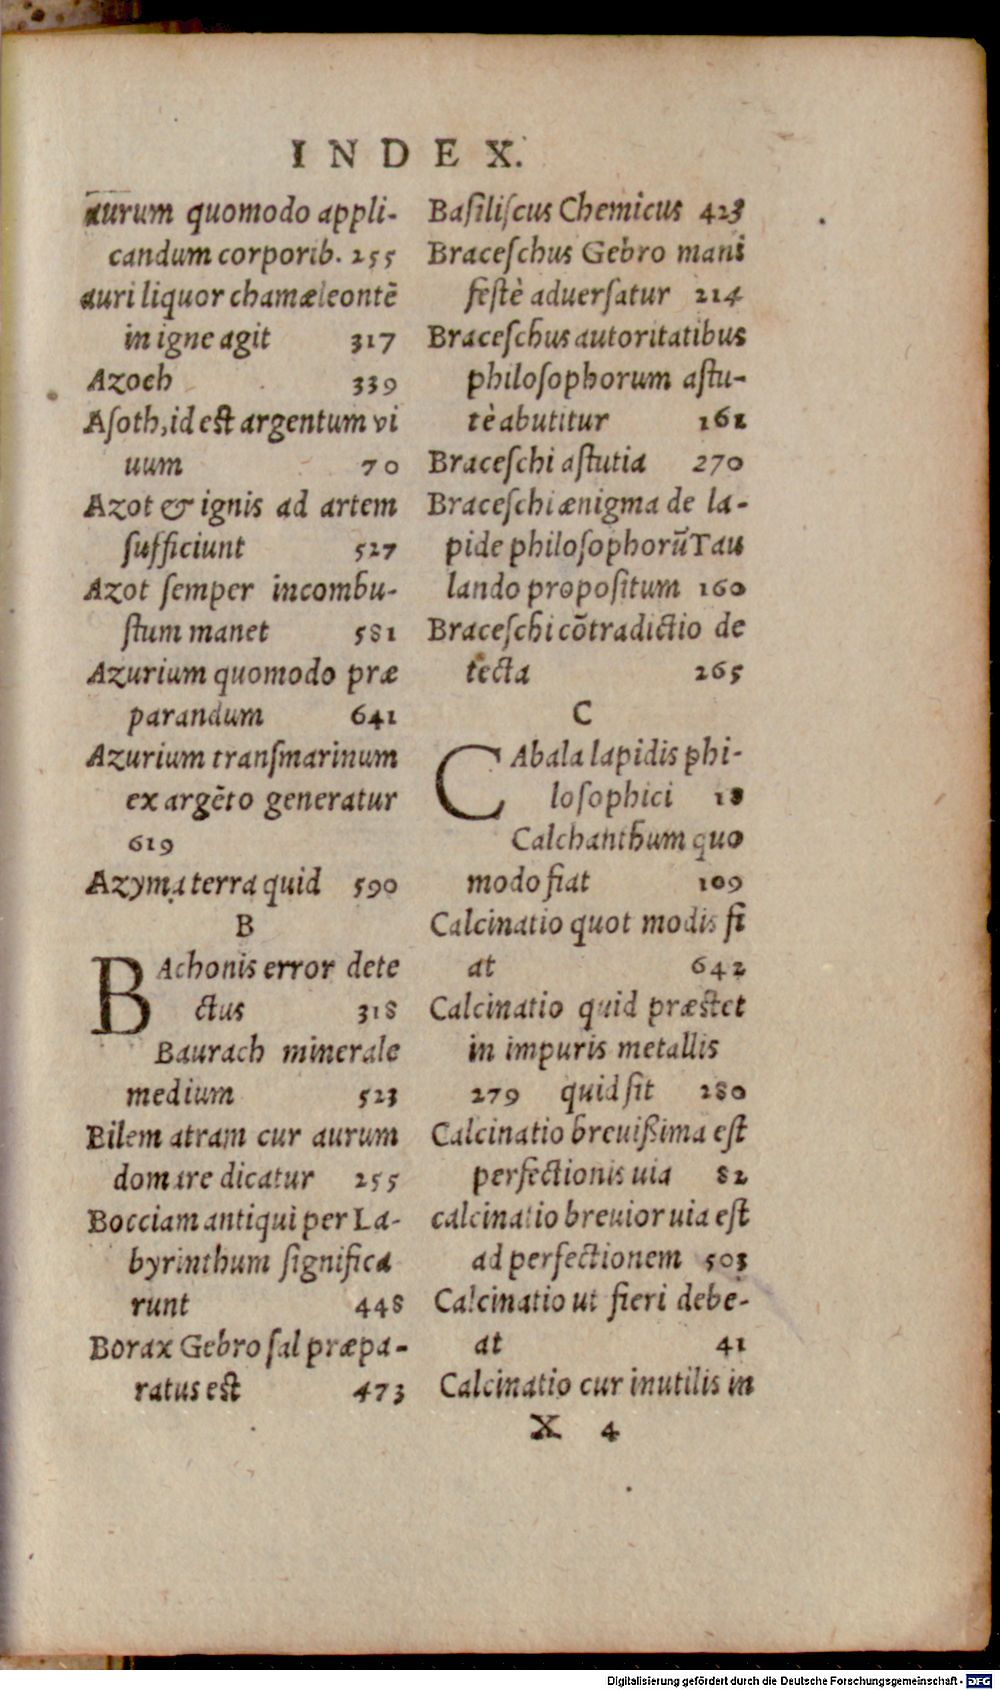 INDEX.
aurum quomodo appli-
candum corporib. 255
auri liquor chamæleontē
in igne agit 317
Azoch 339
Aſoth, id eſt argentum vi
uum 70
Azot & ignis ad artem
ſufficiunt 527
Azot ſemper incombu-
ſtum manet 581
Azurium quomodo præ
parandum 641
Azurium tranſmarinum
ex argēto generatur
619
Azyma terra quid 590
B
BAchonis error dete
ctus 318
Baurach minerale
medium 523
Bilem atram cur aurum
domare dicatur 255
Bocciam antiqui per La-
byrinthum ſignifica
runt 448
Borax Gebro ſal præpa-
ratus eſt 473
Baſiliſcus Chemicus 423
Braceſchus Gebro mani
feſtè aduerſatur 214
Braceſchus autoritatibus
philoſophorum aſtu-
tè abutitur 161
Braceſchi aſtutia 270
Braceſchi ænigma de la-
pide philoſophorū Tau
lando propoſitum 160
Braceſchi cōtradictio de
tecta 265
C
CAbala lapidis phi-
loſophici 18
Calchanthum quo
modo fiat 109
Calcinatio quot modis fi
at 642
Calcinatio quid præſtet
in impuris metallis
279 quid ſit 280
Calcinatio breuiſſima eſt
perfectionis uia 82
calcinatio breuior uia eſt
ad perfectionem 503
Calcinatio ut fieri debe-
at 41
Calcinatio cur inutilis in
X 4
Digitalisierung gefördert durch die Deutsche Forschungsgemeinschaft - DFG